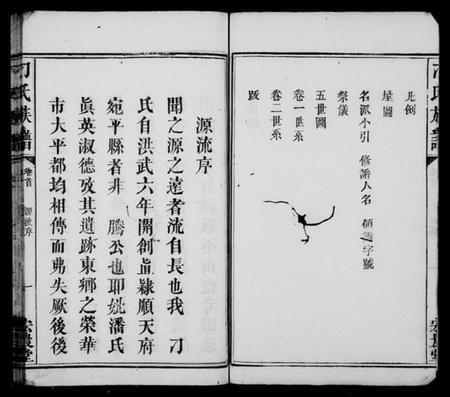 凡例
塋圖
名派小引 修譜人名 領譜字號
祭儀
五世圖
卷一世系
卷二世系
跋
源流序
聞之源之達者流自長也我 刁
氏自洪武六年開創直隸順天府
宛平縣者非 勝公也耶妣潘氏
眞英淑德攷其遺跡東鄉之榮華
市大平都均相傳而弗失厥後後
刁氏族譜 卷首 源流序 一